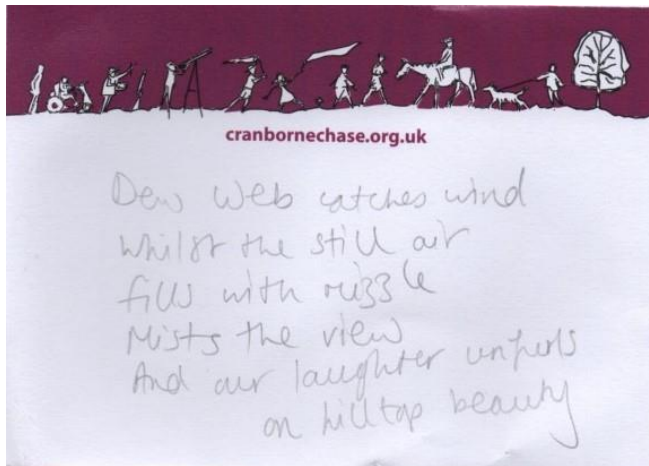 cranbornechase.org.uk
Dew Web catches wind
whilst the still air
fills with mizzle
Mists the view
And our laughter unfurls
on hilltop beauty